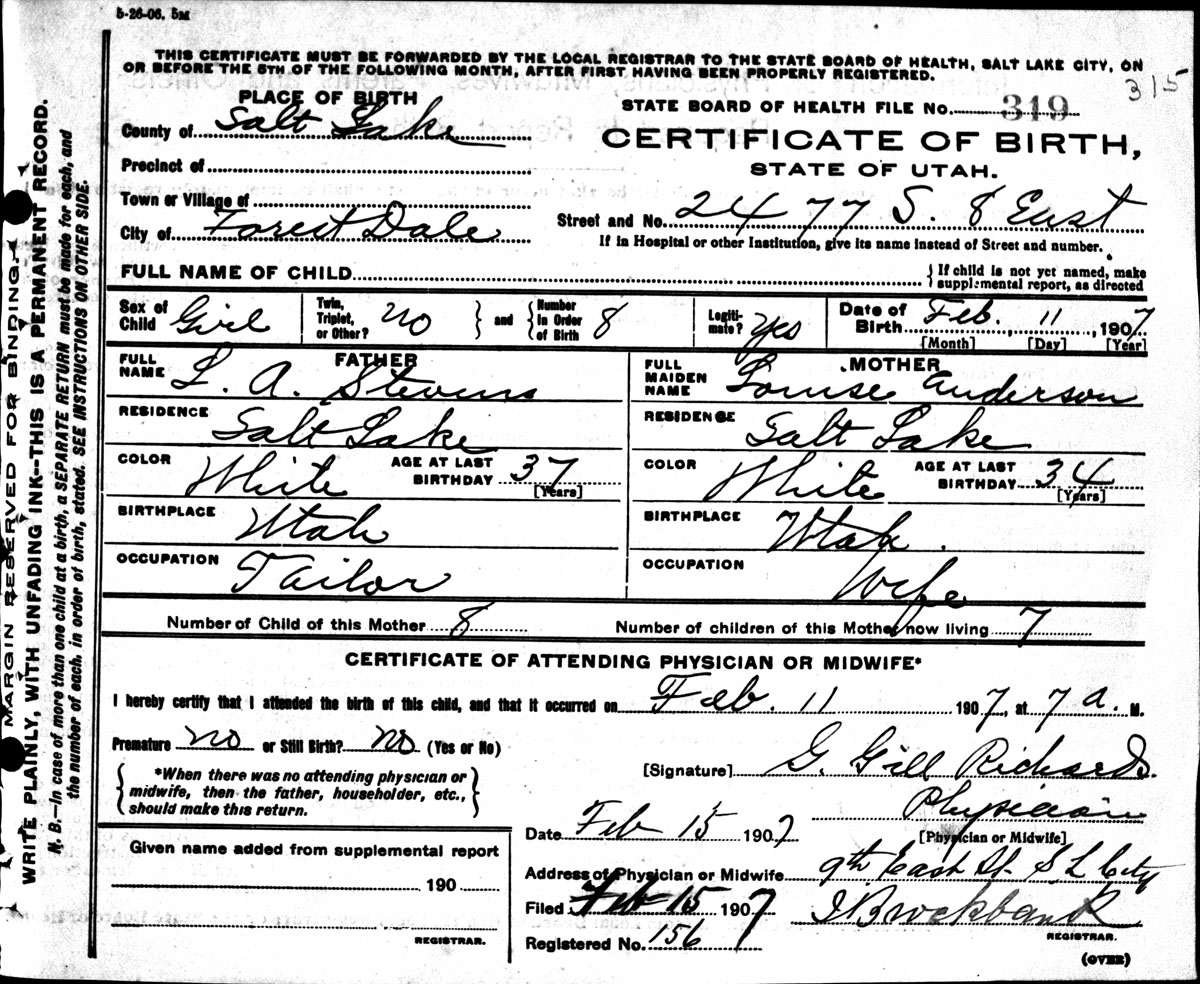 5-26-06. 5M
THIS CERTIFICATE MUST BE FORWARDED BY THE LOCAL REGISTRAR TO THE STATE BOARD OF HEALTH, SALT LAKE CITY, ON
OR BEFORE THE 5TH OF THE FOLLOWING MONTH, AFTER FIRST HAVING BEEN PROPERLY REGISTERED.
315
PLACE OF BIRTH
STATE BOARD OF HEALTH FILE No. 319
County of Salt Lake
CERTIFICATE OF BIRTH,
STATE OF UTAH.
Precinct of
Town or Village of
Street and No. 2477 S. 8 East
City of Forest Dale
If in Hospital or other Institution, give its name instead of Street and number.
FULL NAME OF CHILD
{ If child is not yet named, make
supplemental report, as directed
Sex of Child Girl
Twin, Triplet, or Other? No } and { Number in Order of Birth 8
Legitimate? Yes
Date of Birth Feb. 11, 1907
[Month] [Day] [Year]
FATHER
FULL NAME L. A. Stevens
MOTHER
FULL MAIDEN NAME Louise Anderson
RESIDENCE Salt Lake
RESIDENCE Salt Lake
COLOR White AGE AT LAST BIRTHDAY 37 [Years]
COLOR White AGE AT LAST BIRTHDAY 34 [Years]
BIRTHPLACE Utah
BIRTHPLACE Utah.
OCCUPATION Tailor
OCCUPATION Wife
Number of Child of this Mother 8 Number of children of this Mother now living 7
CERTIFICATE OF ATTENDING PHYSICIAN OR MIDWIFE*
I hereby certify that I attended the birth of this child, and that it occurred on Feb. 11 1907, at 7 a. M.
Premature No or Still Birth? No (Yes or No)
{ *When there was no attending physician or
midwife, then the father, householder, etc.,
should make this return. }
[Signature] G. Gill Richards
Physician
[Physician or Midwife]
Date Feb 15 1907
Address of Physician or Midwife 9th East St. S L City
Filed Feb 15 1907 J Brockbank
REGISTRAR.
Registered No. 156
(OVER)
Given name added from supplemental report
190
REGISTRAR.
MARGIN RESERVED FOR BINDING.
WRITE PLAINLY, WITH UNFADING INK--THIS IS A PERMANENT RECORD.
N. B.—In case of more than one child at a birth, a SEPARATE RETURN must be made for each, and
the number of each, in order of birth, stated. SEE INSTRUCTIONS ON OTHER SIDE.